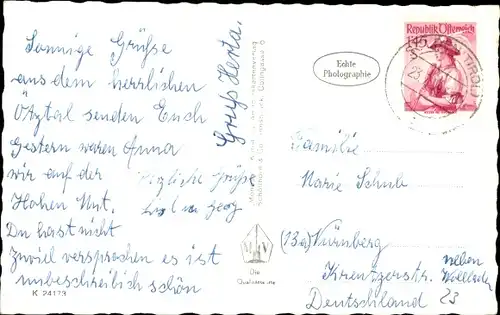 Sonnige Grüße
aus dem herrlichen
Ötztal senden Euch
Gestern waren Anna
wir auf der
Hohen Mut.
Du hast nicht
zuviel versprochen es ist
unbeschreiblich schön
K 24173
Gruß Herta.
Herzliche Grüße
Georg
M V
Die
Echte
Photographie
Republik Österreich
1.45
S
TIROL
23
Familie
Marie Schub
(13a) Nürnberg
Kreutzerstr.
neben
23
Deutschland